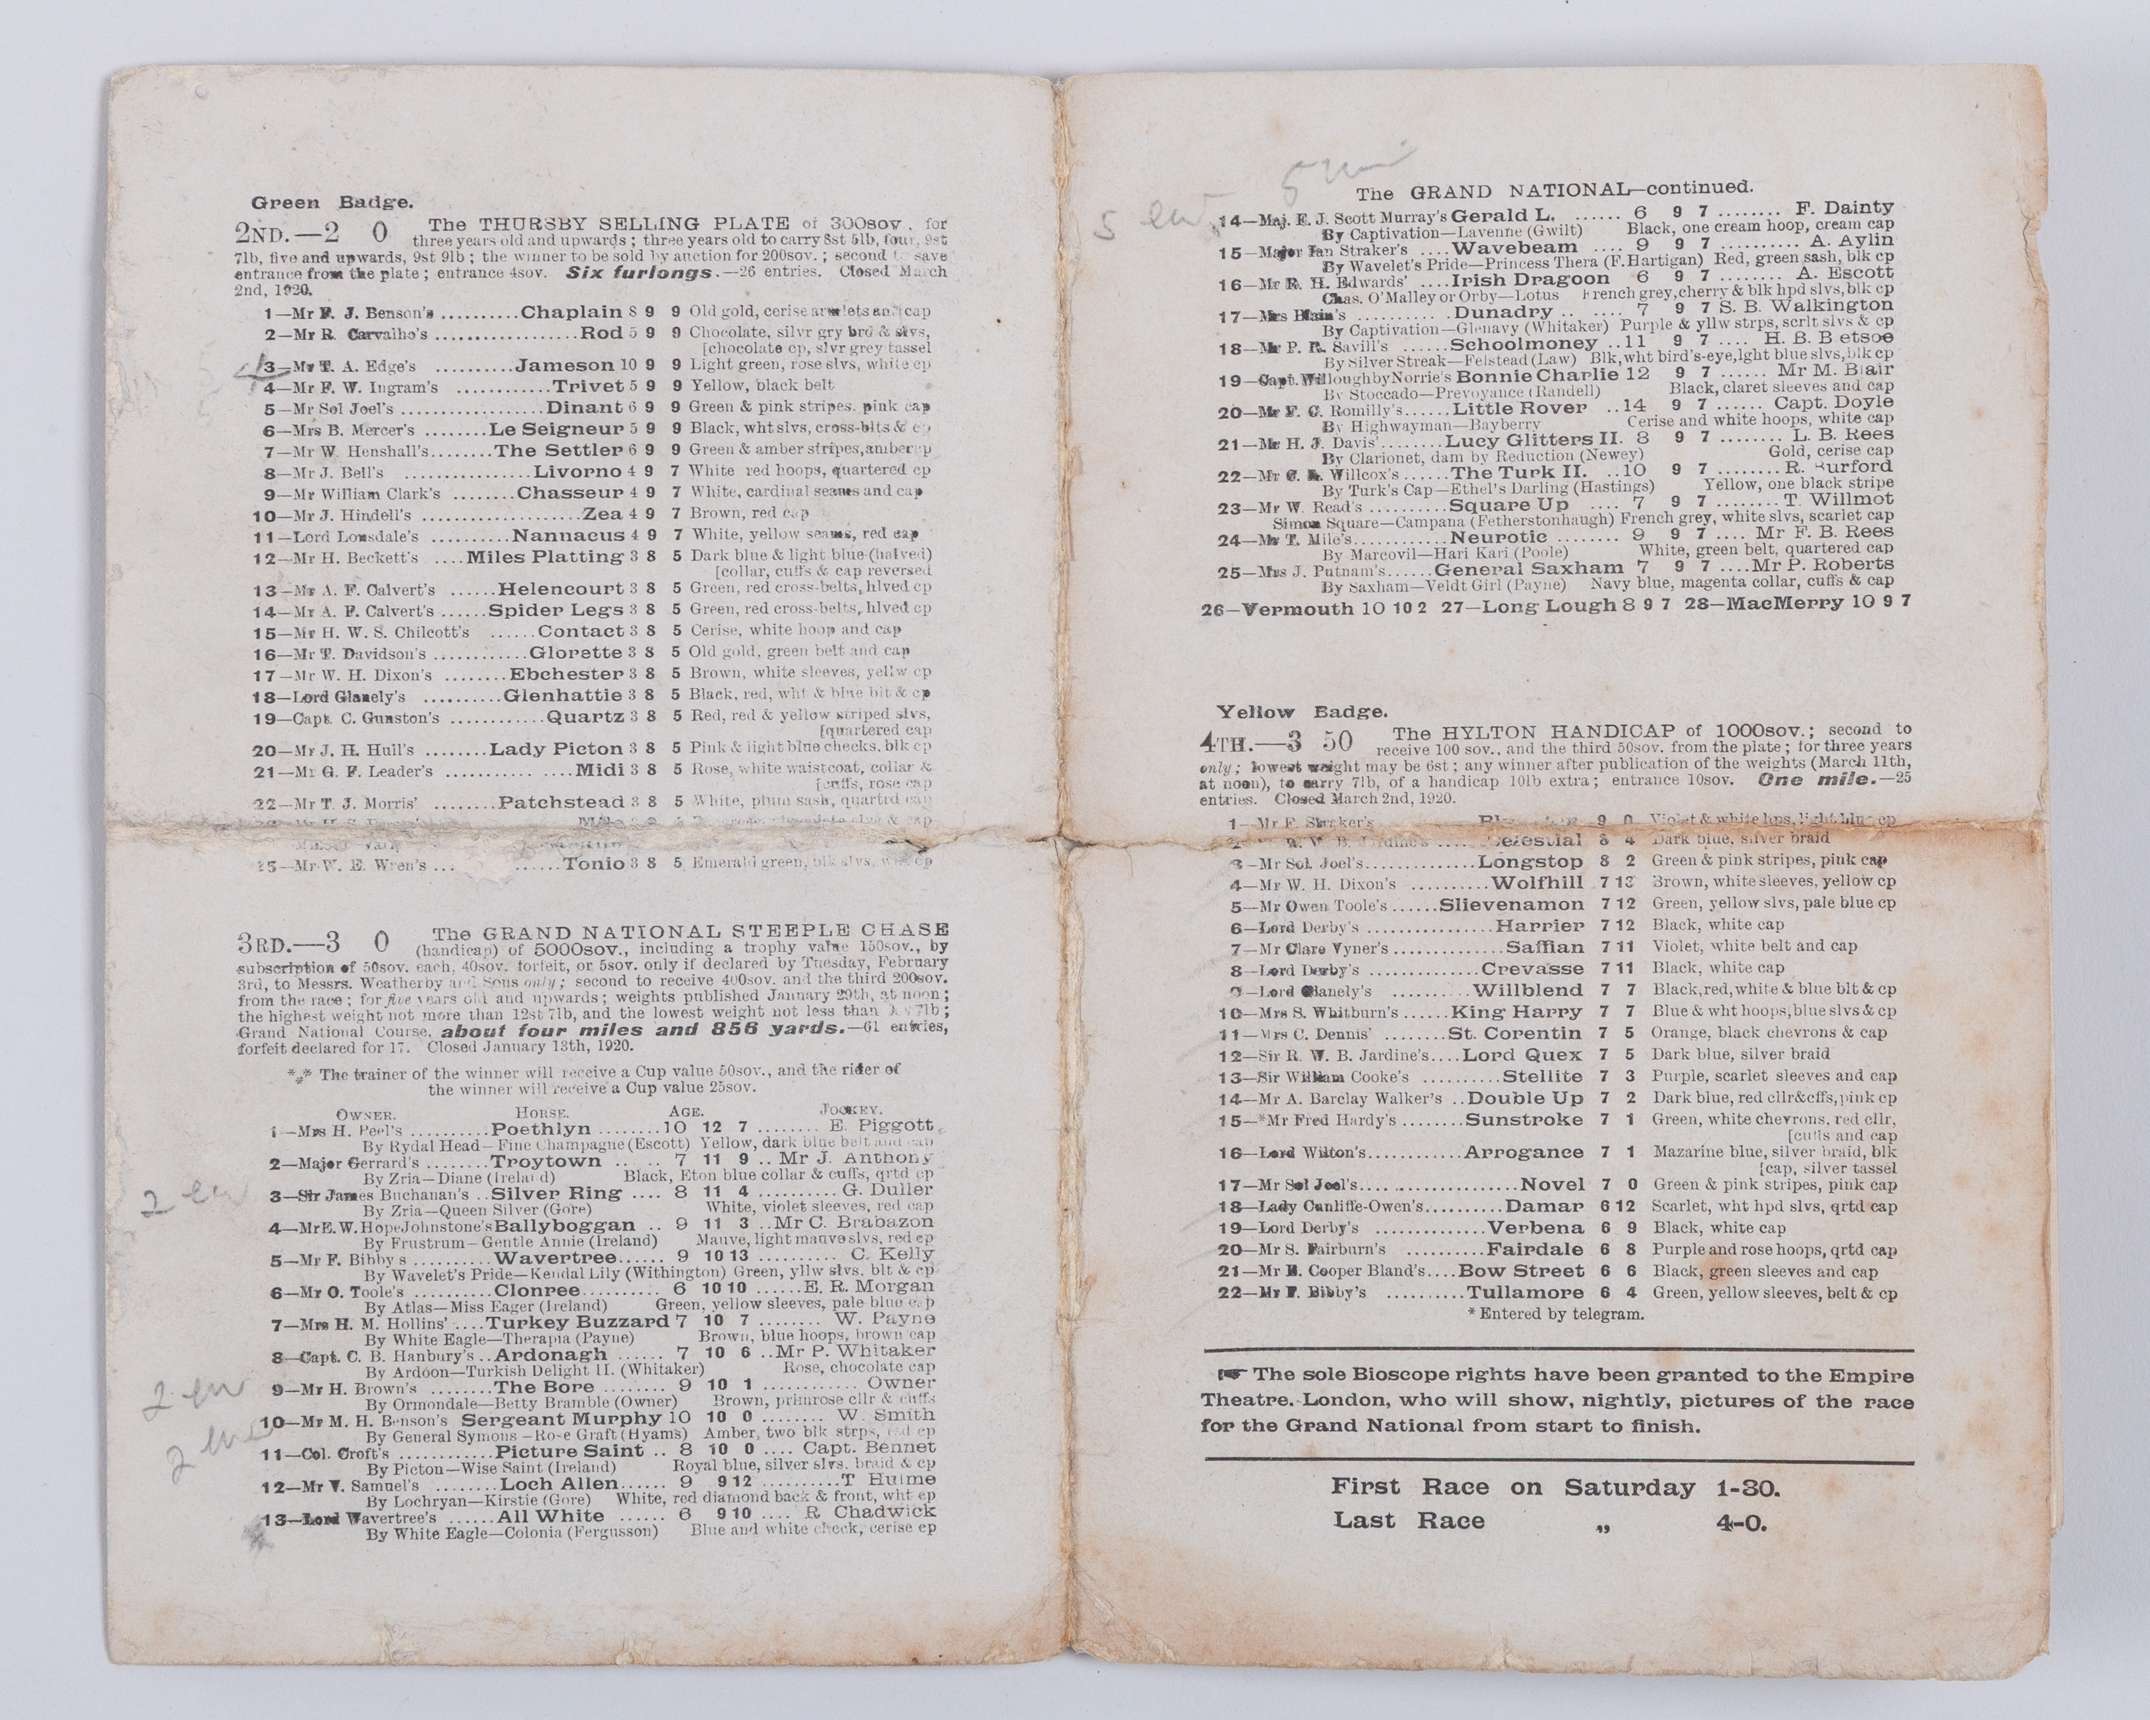 Green Badge.
2ND.—2 0 The THURSBY SELLING PLATE of 300sov., for
three years old and upwards; three years old to carry 8st 5lb, four, 9st
7lb, five and upwards, 9st 9lb; the winner to be sold by auction for 200sov.; second to save
entrance from the plate; entrance 4sov. Six furlongs.—26 entries. Closed March
2nd, 1920.
1—Mr F. J. Benson's ..........Chaplain 8 9 9 Old gold, cerise armlets and cap
2—Mr R. Carvalho's .................Rod 5 9 9 Chocolate, silvr gry brd & slvs,
[chocolate cp, slvr grey tassel
3—Mr T. A. Edge's ..........Jameson 10 9 9 Light green, rose slvs, white cp
4—Mr F. W. Ingram's ............Trivet 5 9 9 Yellow, black belt
5—Mr Sol Joel's ..................Dinant 6 9 9 Green & pink stripes, pink cap
6—Mrs B. Mercer's ........Le Seigneur 5 9 9 Black, wht slvs, cross-blts & cp
7—Mr W. Henshall's........The Settler 6 9 9 Green & amber stripes, amber cp
8—Mr J. Bell's ................Livorno 4 9 7 White red hoops, quartered cp
9—Mr William Clark's ........Chasseur 4 9 7 White, cardinal seams and cap
10—Mr J. Hindell's ....................Zea 4 9 7 Brown, red cap
11—Lord Lonsdale's ..........Nannacus 4 9 7 White, yellow seams, red cap
12—Mr H. Beckett's ....Miles Platting 3 8 5 Dark blue & light blue (halved)
[collar, cuffs & cap reversed
13—Mr A. F. Calvert's ......Helencourt 3 8 5 Green, red cross-belts, hlved cp
14—Mr A. F. Calvert's ......Spider Legs 3 8 5 Green, red cross-belts, hlved cp
15—Mr H. W. S. Chilcott's ......Contact 3 8 5 Cerise, white hoop and cap
16—Mr T. Davidson's ............Glorette 3 8 5 Old gold, green belt and cap
17—Mr W. H. Dixon's ........Ebchester 3 8 5 Brown, white sleeves, yellw cp
18—Lord Glanely's ..........Glenhattie 3 8 5 Black, red, wht & blue blt & cp
19—Capt. C. Gunston's ............Quartz 3 8 5 Red, red & yellow striped slvs,
[quartered cap
20—Mr J. H. Hull's ........Lady Picton 3 8 5 Pink & light blue checks, blk cp
21—Mr G. F. Leader's ...............Midi 3 8 5 Rose, white waistcoat, collar &
[cuffs, rose cap
22—Mr T. J. Morris' ........Patchstead 3 8 5 White, plum sash, quartrd cap
25—Mr W. E. Wren's .........Tonio 3 8 5 Emerald green, blk slvs, wht cp
3RD.—3 0 The GRAND NATIONAL STEEPLE CHASE
(handicap) of 5000sov., including a trophy value 150sov., by
subscription of 50sov. each, 40sov. forfeit, or 5sov. only if declared by Tuesday, February
3rd, to Messrs. Weatherby and Sons only; second to receive 400sov. and the third 200sov.
from the race; for five years old and upwards; weights published January 29th, at noon;
the highest weight not more than 12st 7lb, and the lowest weight not less than 9st 7lb;
Grand National Course, about four miles and 856 yards.—61 entries,
forfeit declared for 17. Closed January 13th, 1920.
*** The trainer of the winner will receive a Cup value 50sov., and the rider of
the winner will receive a Cup value 25sov.
OWNER. HORSE. AGE. JOCKEY.
1—Mrs H. Peel's ..........Poethlyn ........10 12 7 ........ E. Piggott
By Rydal Head—Fine Champagne (Escott) Yellow, dark blue belt and cap
2—Major Gerrard's ........Troytown ...... 7 11 9 .. Mr J. Anthony
By Zria—Diane (Ireland) Black, Eton blue collar & cuffs, qrtd cp
3—Sir James Buchanan's ..Silver Ring .... 8 11 4 .......... G. Duller
By Zria—Queen Silver (Gore) White, violet sleeves, red cap
2 ew
4—Mr E. W. Hope Johnstone's Ballyboggan .. 9 11 3 ..Mr C. Brabazon
By Frustrum—Gentle Annie (Ireland) Mauve, light mauve slvs, red cp
5—Mr F. Bibby's ..........Wavertree...... 9 10 13 .......... C. Kelly
By Wavelet's Pride—Kendal Lily (Withington) Green, yllw slvs, blt & cp
6—Mr O. Toole's ..........Clonree.......... 6 10 10 ......E. R. Morgan
By Atlas—Miss Eager (Ireland) Green, yellow sleeves, pale blue cap
7—Mrs H. M. Hollins' ....Turkey Buzzard 7 10 7 ........ W. Payne
By White Eagle—Therapia (Payne) Brown, blue hoops, brown cap
8—Capt. C. B. Hanbury's ..Ardonagh ...... 7 10 6 ..Mr P. Whitaker
By Ardoon—Turkish Delight II. (Whitaker) Rose, chocolate cap
2 ew
9—Mr H. Brown's ........The Bore ........ 9 10 1 ............ Owner
By Ormondale—Betty Bramble (Owner) Brown, primrose cllr & cuffs
10—Mr M. H. Benson's Sergeant Murphy 10 10 0 ........ W. Smith
By General Symons—Rose Graft (Hyams) Amber, two blk strps, red cp
2
11—Col. Croft's ............Picture Saint .. 8 10 0 .... Capt. Bennet
By Picton—Wise Saint (Ireland) Royal blue, silver slvs, braid & cp
12—Mr V. Samuel's ........Loch Allen...... 9 9 12 ..........T Hulme
By Lochryan—Kirstie (Gore) White, red diamond back & front, wht cp
13—Lord Wavertree's ......All White ...... 6 9 10 .... R Chadwick
By White Eagle—Colonia (Fergusson) Blue and white check, cerise cp
5
5 ew
The GRAND NATIONAL—continued.
14—Maj. E. J. Scott Murray's Gerald L. ...... 6 9 7 ........ F. Dainty
By Captivation—Lavenne (Gwilt) Black, one cream hoop, cream cap
15—Major Ian Straker's ....Wavebeam .... 9 9 7 .......... A. Aylin
By Wavelet's Pride—Princess Thera (F. Hartigan) Red, green sash, blk cp
16—Mr R. H. Edwards' ....Irish Dragoon 6 9 7 ........ A. Escott
Chas. O'Malley or Orby—Lotus French grey, cherry & blk hpd slvs, blk cp
17—Mrs Blain's ............Dunadry .. .... 7 9 7 S. B. Walkington
By Captivation—Glenavy (Whitaker) Purple & yllw strps, scrlt slvs & cp
18—Mr P. R. Savill's ......Schoolmoney ..11 9 7 .... H. B. Betsoe
By Silver Streak—Felstead (Law) Blk, wht bird's-eye, lght blue slvs, blk cp
19—Capt. Willoughby Norrie's Bonnie Charlie 12 9 7 ...... Mr M. Blair
By Stoccado—Prevoyance (Randell) Black, claret sleeves and cap
20—Mr F. C. Romilly's......Little Rover ..14 9 7 ...... Capt. Doyle
By Highwayman—Bayberry Cerise and white hoops, white cap
21—Mr H. J. Davis'........Lucy Glitters II. 8 9 7 ........ L. B. Rees
By Clarionet, dam by Reduction (Newey) Gold, cerise cap
22—Mr C. A. Willcox's......The Turk II. ..10 9 7 ........ R. Burford
By Turk's Cap—Ethel's Darling (Hastings) Yellow, one black stripe
23—Mr W. Read's ..........Square Up .... 7 9 7 ........T. Willmot
Simon Square—Campana (Fetherstonhaugh) French grey, white slvs, scarlet cap
24—Mr T. Mile's............Neurotic ........ 9 9 7 .... Mr F. B. Rees
By Marcovil—Hari Kari (Poole) White, green belt, quartered cap
25—Mrs J. Putnam's......General Saxham 7 9 7 ....Mr P. Roberts
By Saxham—Veldt Girl (Payne) Navy blue, magenta collar, cuffs & cap
26—Vermouth 10 10 2 27—Long Lough 8 9 7 28—MacMerry 10 9 7
Yellow Badge.
4TH.—3 50 The HYLTON HANDICAP of 1000sov.; second to
receive 100 sov., and the third 50sov. from the plate; for three years
only; lowest weight may be 6st; any winner after publication of the weights (March 11th,
at noon), to carry 7lb, of a handicap 10lb extra; entrance 10sov. One mile.—25
entries. Closed March 2nd, 1920.
1—Mr F. Straker's 9 0 Violet & white hps, light blue cp
Celestial 8 4 Dark blue, silver braid
3—Mr Sol. Joel's..............Longstop 8 2 Green & pink stripes, pink cap
4—Mr W. H. Dixon's ..........Wolfhill 7 13 Brown, white sleeves, yellow cp
5—Mr Owen Toole's ......Slievenamon 7 12 Green, yellow slvs, pale blue cp
6—Lord Derby's ................Harrier 7 12 Black, white cap
7—Mr Clare Vyner's..............Saffian 7 11 Violet, white belt and cap
8—Lord Derby's ..............Crevasse 7 11 Black, white cap
9—Lord Glanely's ..........Willblend 7 7 Black, red, white & blue blt & cp
10—Mrs S. Whitburn's ......King Harry 7 7 Blue & wht hoops, blue slvs & cp
11—Mrs C. Dennis' ........St. Corentin 7 5 Orange, black chevrons & cap
12—Sir R. W. B. Jardine's....Lord Quex 7 5 Dark blue, silver braid
13—Sir William Cooke's ..........Stellite 7 3 Purple, scarlet sleeves and cap
14—Mr A. Barclay Walker's ..Double Up 7 2 Dark blue, red cllr & cffs, pink cp
15—*Mr Fred Hardy's ........Sunstroke 7 1 Green, white chevrons, red cllr,
[cuffs and cap
16—Lord Wilton's............Arrogance 7 1 Mazarine blue, silver braid, blk
[cap, silver tassel
17—Mr Sol Joel's....................Novel 7 0 Green & pink stripes, pink cap
18—Lady Cunliffe-Owen's..........Damar 6 12 Scarlet, wht hpd slvs, qrtd cap
19—Lord Derby's ..............Verbena 6 9 Black, white cap
20—Mr S. Fairburn's ..........Fairdale 6 8 Purple and rose hoops, qrtd cap
21—Mr H. Cooper Bland's....Bow Street 6 6 Black, green sleeves and cap
22—Mr F. Bibby's ..........Tullamore 6 4 Green, yellow sleeves, belt & cp
* Entered by telegram.
☛ The sole Bioscope rights have been granted to the Empire
Theatre, London, who will show, nightly, pictures of the race
for the Grand National from start to finish.
First Race on Saturday 1-30.
Last Race „ 4-0.